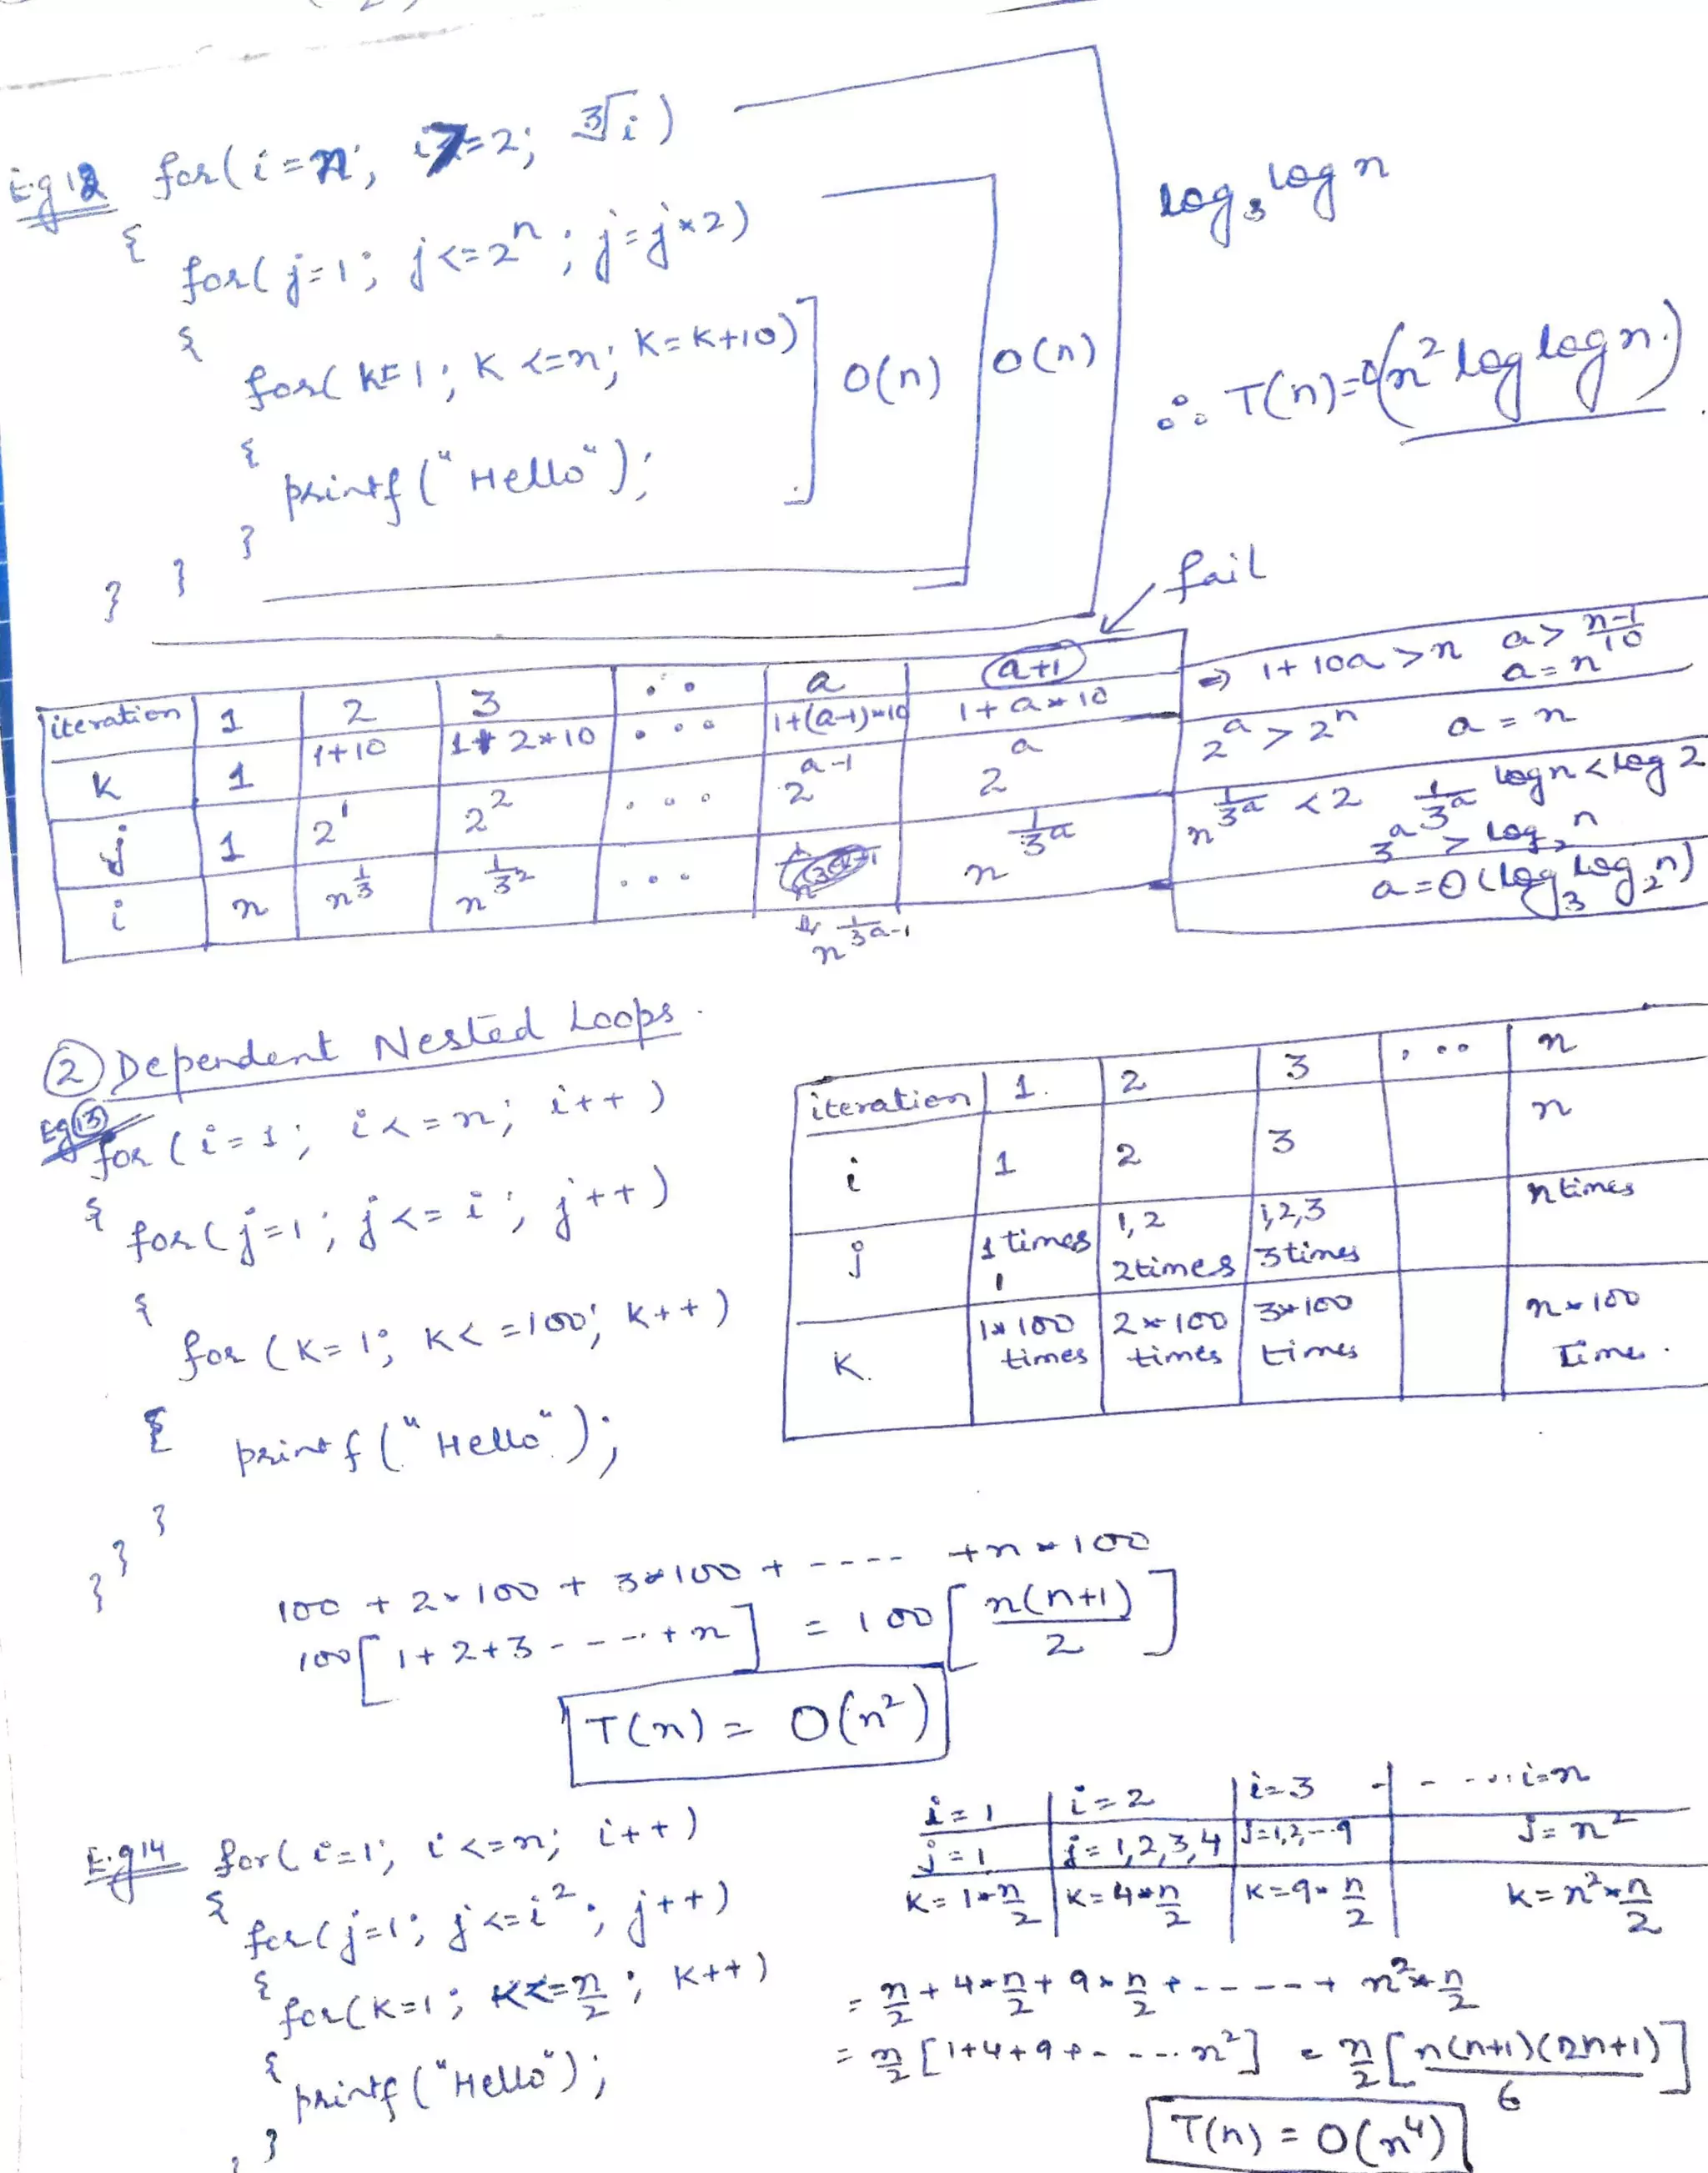 Eg 12 for(i=n; i>=2; ∛i)
{
for(j=1; j<=2ⁿ; j=j*2)
{
for(k=1; k<=n; k=k+10)
{
printf("Hello");
}
}
}
O(n)
O(n)
log₃ log n
∴ T(n)=O(n² log log n)
fail
iteration 1 2 3 .. a a+1
k 1 1+10 1+2*10 ... 1+(a-1)*10 1+a*10 ⇒ 1+10a>n a> (n-1)/10 a=n
j 1 2¹ 2² ... 2^(a-1) 2^a 2^a > 2^n a = n
i n n^(1/3) n^(1/3²) ... n^(1/3^(a-1)) n^(1/3^a) n^(1/3^a) < 2 1/3^a log n < log 2
3^a > log₂ n
a=O(log₃ log₂ n)
② Dependent Nested Loops.
Eg ⑬
for (i=1; i<=n; i++)
{
for(j=1; j<=i; j++)
{
for (k=1; k<=100; k++)
{
printf("Hello");
}
}
}
iteration 1. 2 3 ... n
i 1 2 3 n
j 1 times 1,2 2times 1,2,3 3times n times
1
k. 1*100 times 2*100 times 3*100 times n*100 Time.
100 + 2*100 + 3*100 + ---- +n*100
100[1+2+3----+n] = 100[n(n+1)/2]
T(n) = O(n²)
E.g 14 for(i=1; i<=n; i++)
{
for(j=1; j<=i²; j++)
{
for(k=1; k<=n/2; k++)
{
printf("Hello");
}
i=1 i=2 i=3 - - -... i=n
j=1 j=1,2,3,4 j=1,2,--9 j=n²
k=1*n/2 k=4*n/2 k=9*n/2 k=n²*n/2
= n/2 + 4*n/2 + 9*n/2 + ----- + n²*n/2
= n/2 [1+4+9+- ---. n²] = n/2 [n(n+1)(2n+1)/6]
T(n) = O(n⁴)